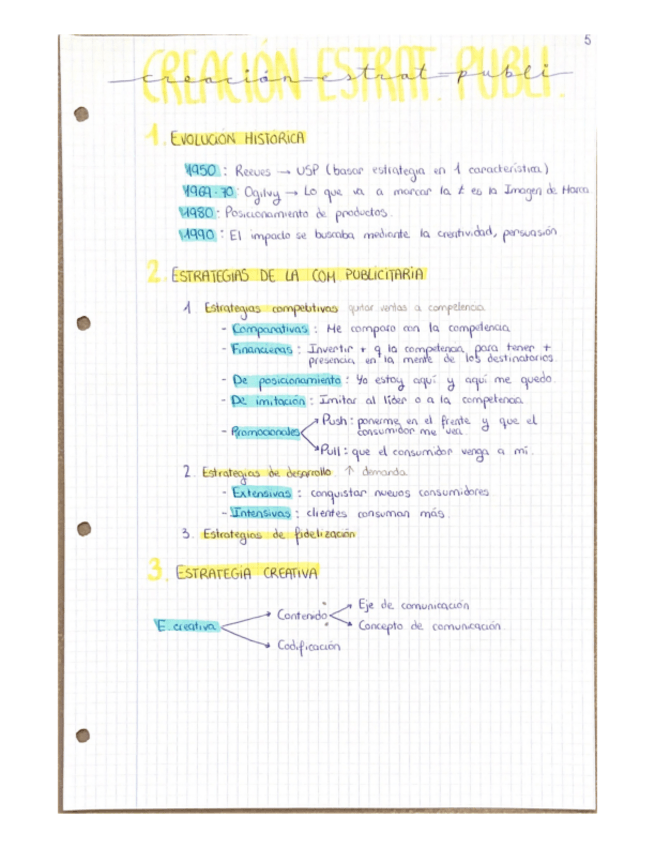 5
CREACIÓN ESTRAT. PUBLI.
creación estrat publi
1. EVOLUCIÓN HISTÓRICA
1950: Reeves → USP (basar estrategia en 1 característica)
1960-70: Ogilvy → Lo que va a marcar la ≠ es la Imagen de Marca.
1980: Posicionamiento de productos.
1990: El impacto se buscaba mediante la creatividad, persuasión
2. ESTRATEGIAS DE LA COM PUBLICITARIA
1 Estrategias competitivas quitar ventas a competencia
- Comparativas: Me comparo con la competencia
- Financieras: Invertir + q la competencia para tener +
presencia en la mente de los destinatarios.
- De posicionamiento: Yo estoy aquí y aquí me quedo.
- De imitación: Imitar al líder o a la competencia
- Promocionales
Push: ponerme en el frente y que el
consumidor me vea.
Pull: que el consumidor venga a mí.
2. Estrategias de desarrollo ↑ demanda
- Extensivas: conquistar nuevos consumidores
- Intensivas: clientes consuman más.
3. Estrategias de fidelización
3. ESTRATEGIA CREATIVA
E. creativa
Contenido
Eje de comunicación
Concepto de comunicación
Codificación